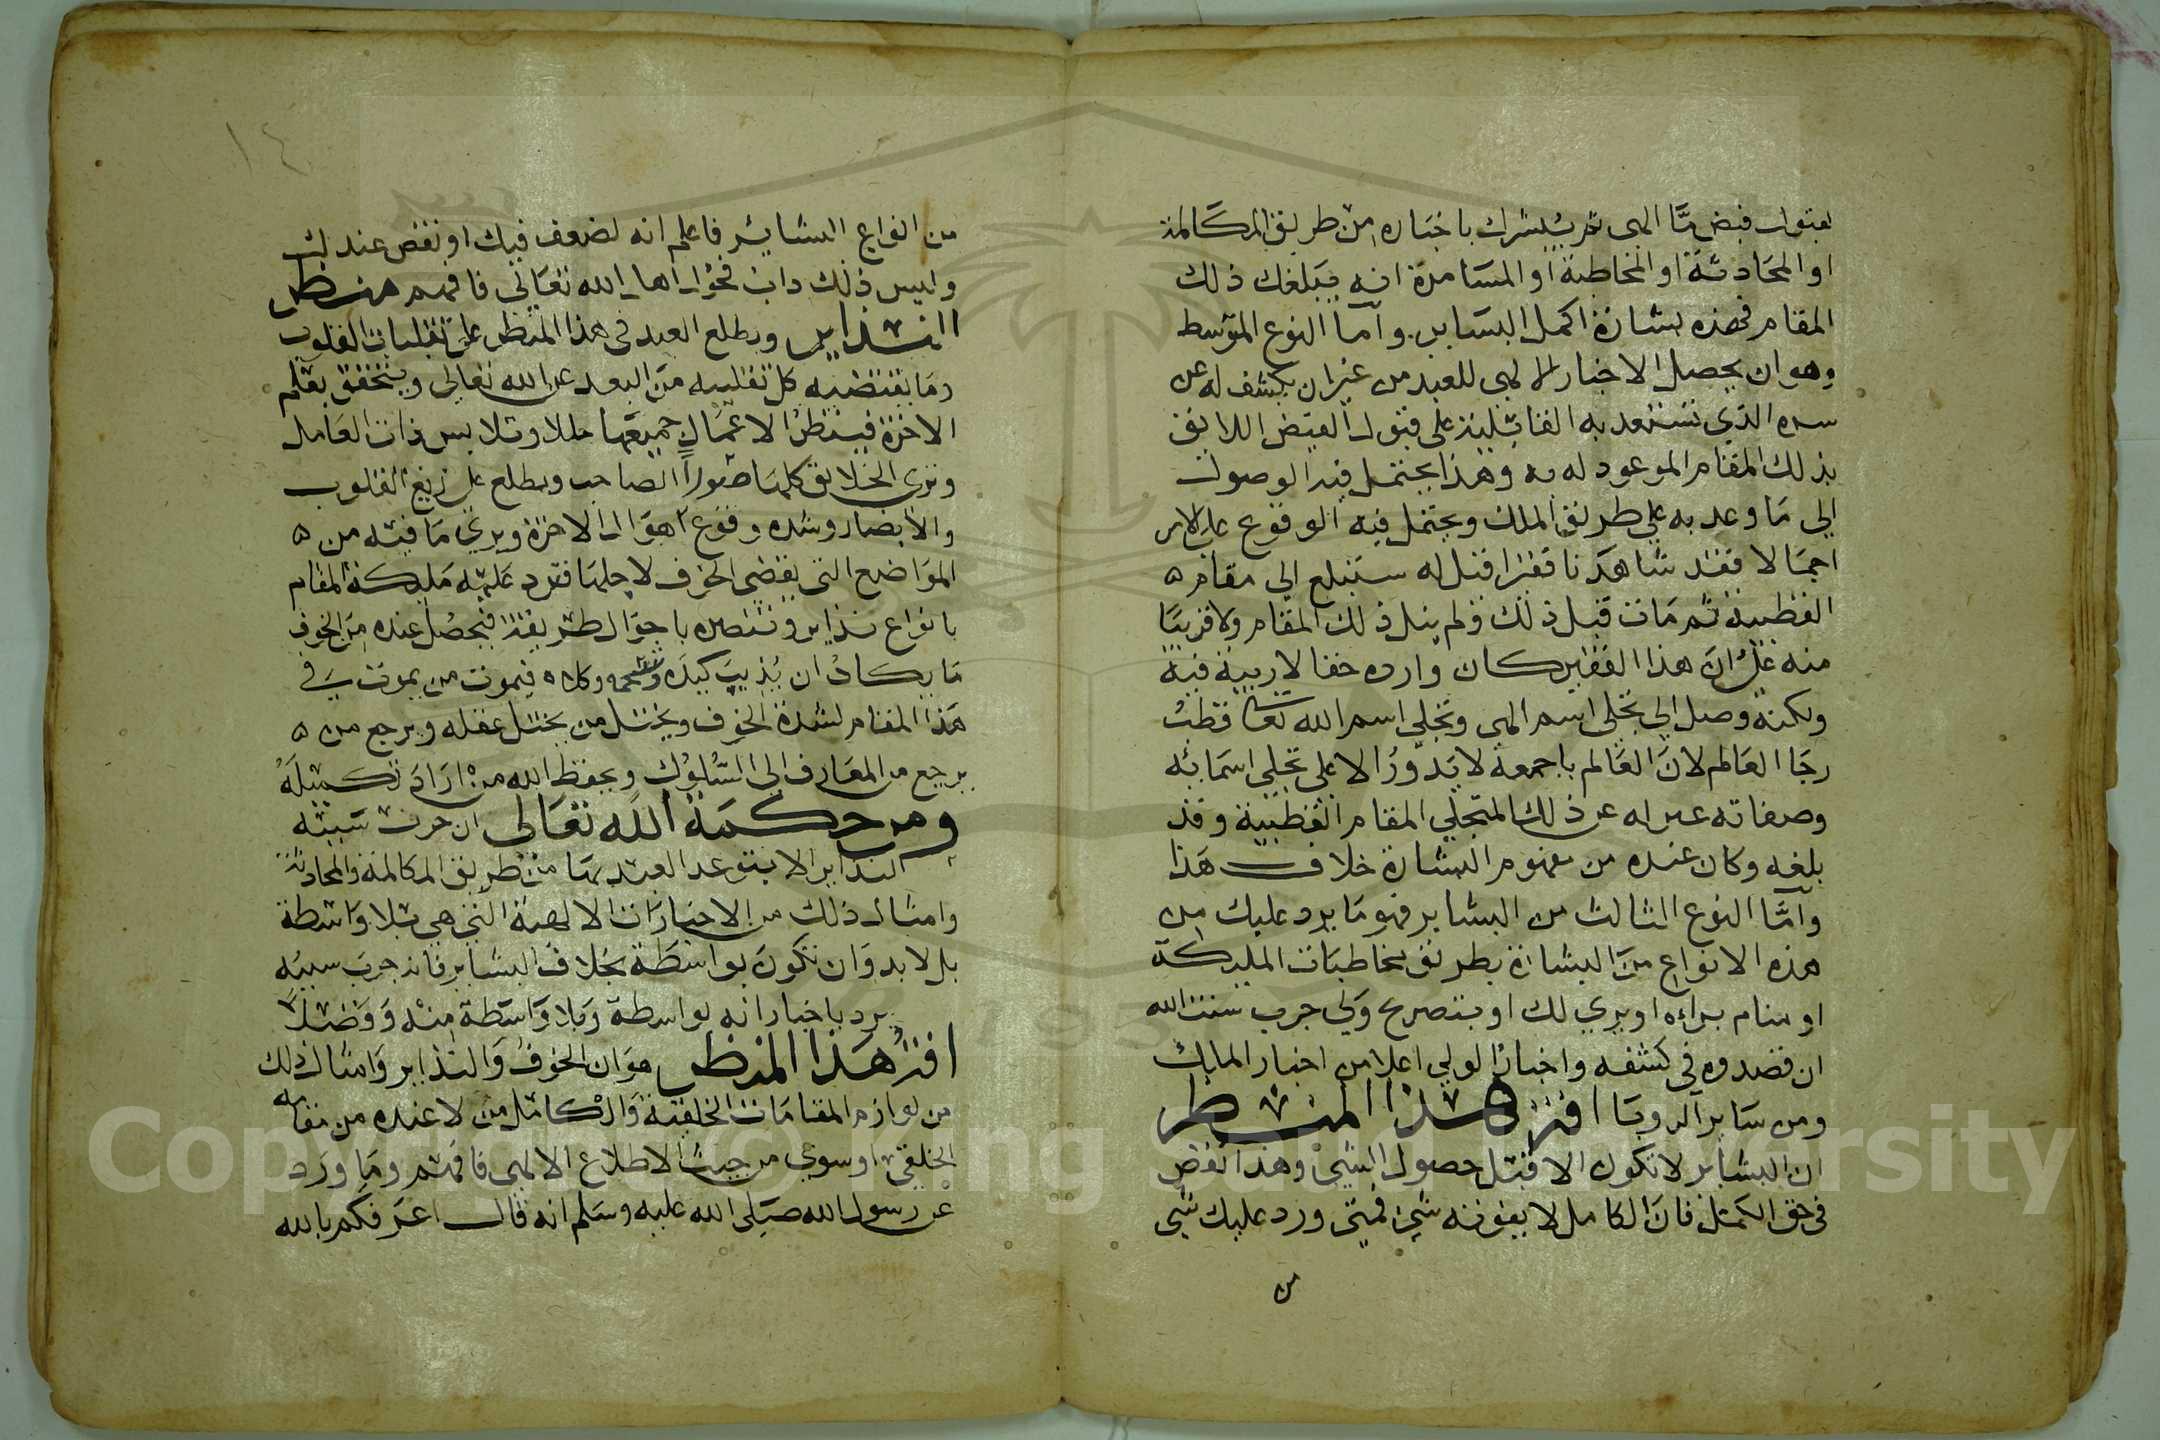 لقبول فيض ما الهي ثم يبشرك باخباره من طريق المكالمة
او المحادثة او المخاطبة او المسامرة انه يبلغك ذلك
المقام فهذه بشارة اكمل البشاير. وأما النوع المتوسط
وهو ان يحصل الاخبار الالهي للعبد من غير ان يكشف له عن
سره الذي تستعد به القابلية على قبول الفيض اللايق
بذلك المقام الموعود له به وهذا يحتمل فيه الوصول
الي ما وعد به علي طريق الملك ويحتمل فيه الوقوع علي الامر
اجمالا فقد شاهدنا فقيرا قيل له ستبلغ الي مقام ه
القطبية ثم مات قبل ذلك ولم ينل ذلك المقام ولا قريبا
منه علي ان هذا الفقير كان وارده حقا لا ريبة فيه
ولكنه وصل الي تجلي اسم الهي وتجلي اسم الله تعالى قطب
رحا العالم لان العالم باجمعه لا يدور الا علي تجلي اسمائه
وصفاته عبر له عن ذلك المتجلي المقام القطبية وقد
بلغه وكان عنده من مفهوم البشارة خلاف هذا
وأما النوع الثالث من البشاير فهو ما يرد عليك من
هذه الانواع من البشارة بطريق مخاطبات المليكة
او منام يراه او يري لك او بتصريح ولي جرب سنت الله
ان قصدوه في كشفه واخبار الولي اعلا من اخبار الملك
ومن ساير الرويا افة هذا المنظر
ان البشاير لا تكون الا قبل حصول الشي وهذا نقص
في حق الكمل فان الكامل لا يفوته شي فمتي ورد عليك شي
من
١٤
من انواع البشاير فاعلم انه لضعف فيك او نقص عندك
وليس ذلك داب فحول اهل الله تعالي فافهم منظر
النذاير ويطلع العبد في هذا المنظر علي تقلبات القلوب
وما يقتضيه كل تقليبه من البعد عن الله تعالي ويتحقق بعلم
الاخرة فينظر الاعمال جميعها حللا وتلابس ذات العامل
وتري الخلايق كلها صورا لصاحب ويطلع علي زيغ القلوب
والابصار وشده وقوع اهوال الاخرة ويري ما فيه من ه
المواضع التي يقضي الخوف لاجلها فترد عليه مليكة المقام
بانواع نذاير وتنصره باحوال طريقته فيحصل عنده من الخوف
ما يكاد ان يذيب كبده وشحمه وكلاه فيموت من يموت في
هذا المقام لشدة الخوف ويختل من يختل عقله ويرجع من ه
يرجع من المعارف الي السلوك ويحفظ الله من اراد تكميله
ومن حكمة الله تعالى ان جرت سنته
النذاير الا يتوعد العبد بها من طريق المكالمة والمحادثة
وامثال ذلك من الاخبارات الالهية التي هي بلا واسطة
بل لا بد وان تكون بواسطة بخلاف البشاير فانه جرت سنته
يرد باخبارا نه بواسطة وبلا واسطة منه وفضلا
افة هذا المنظر هو ان الخوف والنذاير وامثال ذلك
من لوازم المقامات الخلقية والكامل من لا عنده من مقامه
الخلقي سوي من حيث الاطلاع الالهي فافهم وما ورد
عن رسول الله صلي الله عليه وسلم انه قال اعرفكم بالله